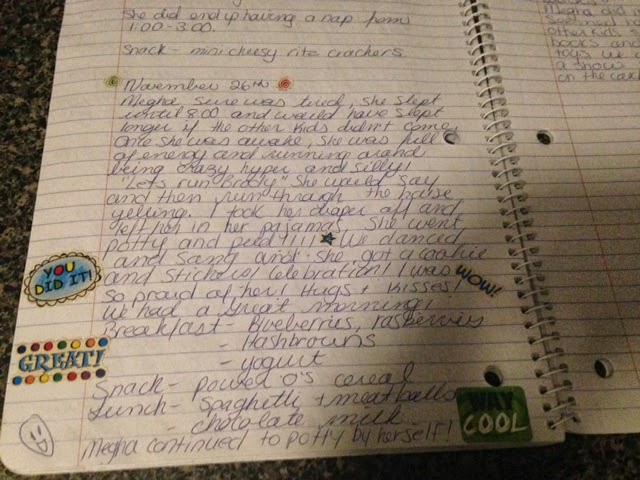 She did end up having a nap from
1:00-3:00.
Snack - mini cheesy ritz crackers
November 26TH
Megha sure was tired, she slept
until 8:00 and would have slept
longer if the other kids didn't come.
Once she was awake, she was full
of energy and running around
being crazy hyper and silly!
"Let's run Brody" she would say
and then run through the house
yelling. I took her diaper off and
left her in her pajamas. She went
potty and peed!!!! We danced
and sang and she got a cookie
and stickers! Celebration! I was
so proud of her! Hugs + Kisses!
We had a Great morning!
YOU
DID IT!
WOW!
Breakfast - Blueberries, raspberries
- Hashbrowns
- yogurt
GREAT!
Snack - power O's cereal
Lunch - Spaghetti + meatballs
- chocolate milk
WAY
COOL
Megha continued to potty by herself!
Megha did
other kids
books and
toys. we
a snow
on the